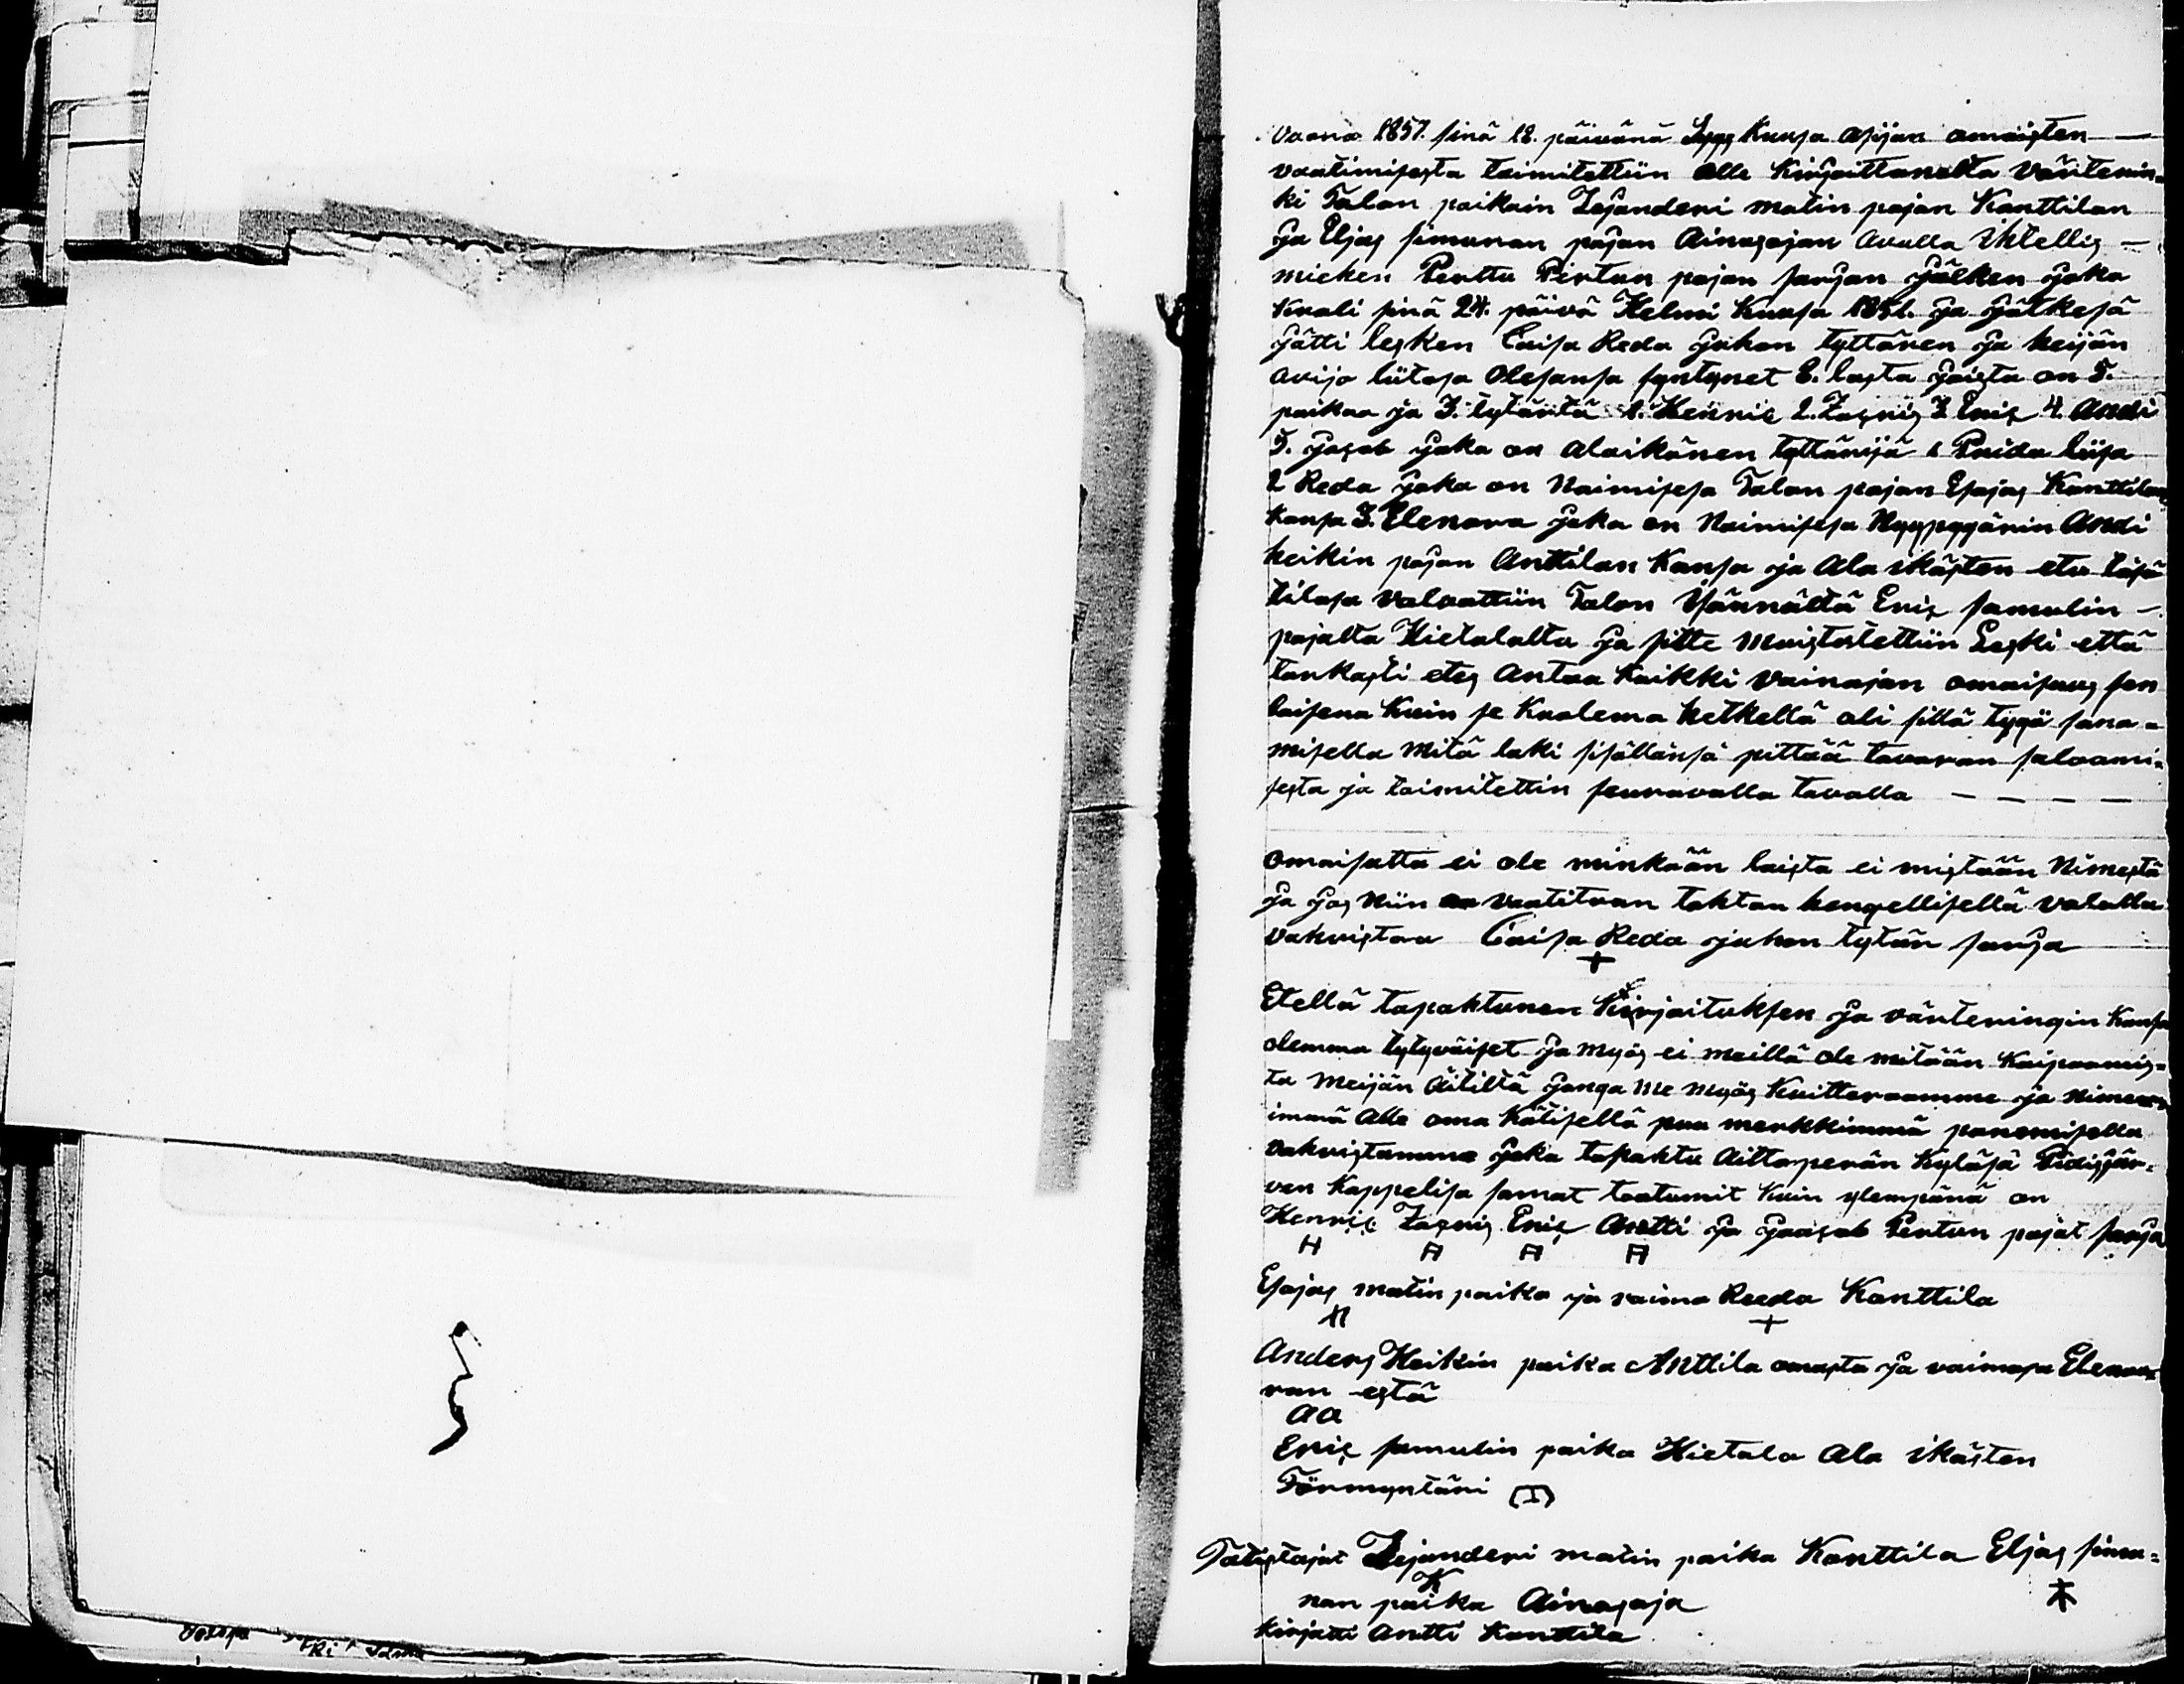 Vuona 1857. sinä 18. päivänä Syys Kuusa asijan omaisten —
vaatimisesta toimitettiin alle Kirjoittaneilta värtemin-
ki Talon poikain Zejanderi matin pojan Kanttilan
ja Eljas simunan pojan Ainasojan avulla Ihtellis —
miehen Perttu Pertun pojan sarjan jälken joka
Kuali sinä 24. päivä Helmi Kuusa 1851. ja jälkesä
jätti lesken Caisa Reda juhon tyttären ja heijän
avijo liitosa Olesansa syntynet 8. lasta joista on 5.
poikaa ja 3. tytärtä 1. Henric 2. Zacris 3 Eric 4. Andi
5. jacob joka on alaikänen tyttärijä 1 Priida liisa
2 Reda joka on Naimisesa Talon pojan Esajas Kanttilan
Kansa 3. Elenora joka on Naimisesa Nyypyyjärin Andi
heikin pojan Anttilan Kansa ja Ala ikästen etu täsä
tilasa valvottiin Talon Isännältä Eric samulin —
pojalta Hietalalta ja sitte muistotettiin Leski että
tarkasti etes Antaa Kaikki vainajan omaisuus sen
laisena Kuin se Kualema hetkellä oli sillä tygö sana-
misella Mitä laki sisällänsä pittää tavaran salaami-
sesta ja toimitettin seuravalla tavalla — — — —
omaisutta ei ole minkään laista ei mistään Nimestä
ja jos Niin vaatitaan tahton hengellisellä valalla
vahvistaa Caisa Reda juhon tytän sarja
+
Etellä tapahtunen Kirjoituksen ja värteringin Kansa
olemma tytyväiset ja myös ei meillä ole mitään Kaipaamis-
ta meijän äitiltä jonga me myös Kuitteraamme ja nime
immä alle oma Kätisellä puu merkkimmä panemisella
vahvistamme joka tapahtu Aittoperän Kyläsä Pidisjär-
ven Kappelisa samat taatumit Kuin ylempänä on
Henric Zacris Eric Antti ja jaacob Pertun pojat sarja
H A A A
Esajas matin poika ja vaimo Reeda Kanttila
+
Anders Heikin poika Anttila omasta ja vaimosa Elenoo-
ran estä
AA
Eric samulin poika Hietala Ala ikästen
Förmyntäri (I)
Totistajat Zejanderi matin poika Kanttila Eljas simu-
K
nan poika Ainasoja
Kirjotti Antti Kanttila